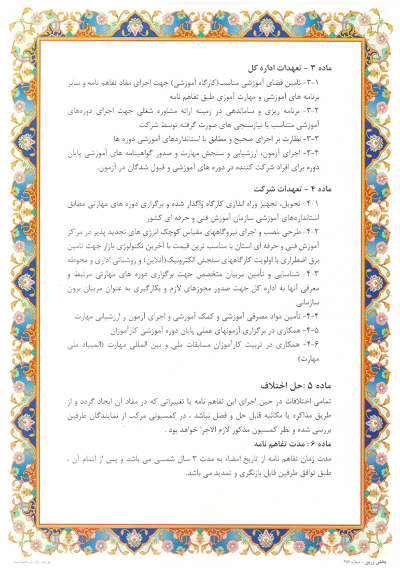 ماده ۳ - تعهدات اداره کل
۳-۱- تامین فضای آموزشی مناسب(کارگاه آموزشی) جهت اجرای مفاد تفاهم نامه و سایر
برنامه های آموزشی و مهارت آموزی طبق تفاهم نامه
۳-۲- برنامه ریزی و ساماندهی در زمینه ارائه مشاوره شغلی جهت اجرای دوره‌های
آموزشی متناسب با نیازسنجی های صورت گرفته توسط شرکت
۳-۳- نظارت بر اجرای صحیح و مطابق با استانداردهای آموزشی دوره ها
۳-۴- اجرای آزمون، ارزشیابی و سنجش مهارت و صدور گواهینامه های آموزشی پایان
دوره برای افراد شرکت کننده در دوره های آموزشی و قبول شدگان در آزمون.
ماده ۴ - تعهدات شرکت
۴-۱- تحویل، تجهیز وراه اندازی کارگاه واگذار شده و برگزاری دوره های مهارتی مطابق
استانداردهای آموزشی سازمان آموزش فنی و حرفه ای کشور
۴-۲- طرحی نصب و اجرای نیروگاههای مقیاس کوچک انرژی های تجدید پذیر در مراکز
آموزش فنی و حرفه ای استان با مناسب ترین قیمت با آخرین تکنولوژی بازار جهت تامین
برق اضطراری با اولویت کارگاههای سنجش الکترونیک(آنلاین) و روشنائی اداری و محوطه
۴-۳- شناسایی و تأمین مربیان متخصص جهت برگزاری دوره های مهارتی مرتبط و
معرفی آنها به اداره کل جهت صدور مجوزهای لازم و بکارگیری به عنوان مربیان برون
سازمانی
۴-۴- تأمین مواد مصرفی آموزشی و کمک آموزشی و اجرای آزمون و ارزشیابی مهارت
۴-۵- همکاری در برگزاری آزمونهای عملی پایان دوره آموزشی کارآموزان
۴-۶- همکاری در تربیت کارآموزان مسابقات ملی و بین المللی مهارت (المپیاد ملی
مهارت)
ماده ۵ :حل اختلاف
تمامی اختلافات در حین اجرای این تفاهم نامه یا تغییراتی که در مفاد آن ایجاد گردد و از
طریق مذاکره یا مکاتبه قابل حل و فصل نباشد ، در کمسیونی مرکب از نمایندگان طرفین
بررسی شده و نظر کمسیون مذکور لازم الاجرا خواهد بود .
ماده ۶ : مدت تفاهم نامه
مدت زمان تفاهم نامه از تاریخ امضاء به مدت ۳ سال شمسی می باشد و پس از اتمام آن ،
طبق توافق طرفین قابل بازنگری و تمدید می باشد.
پخش زرین